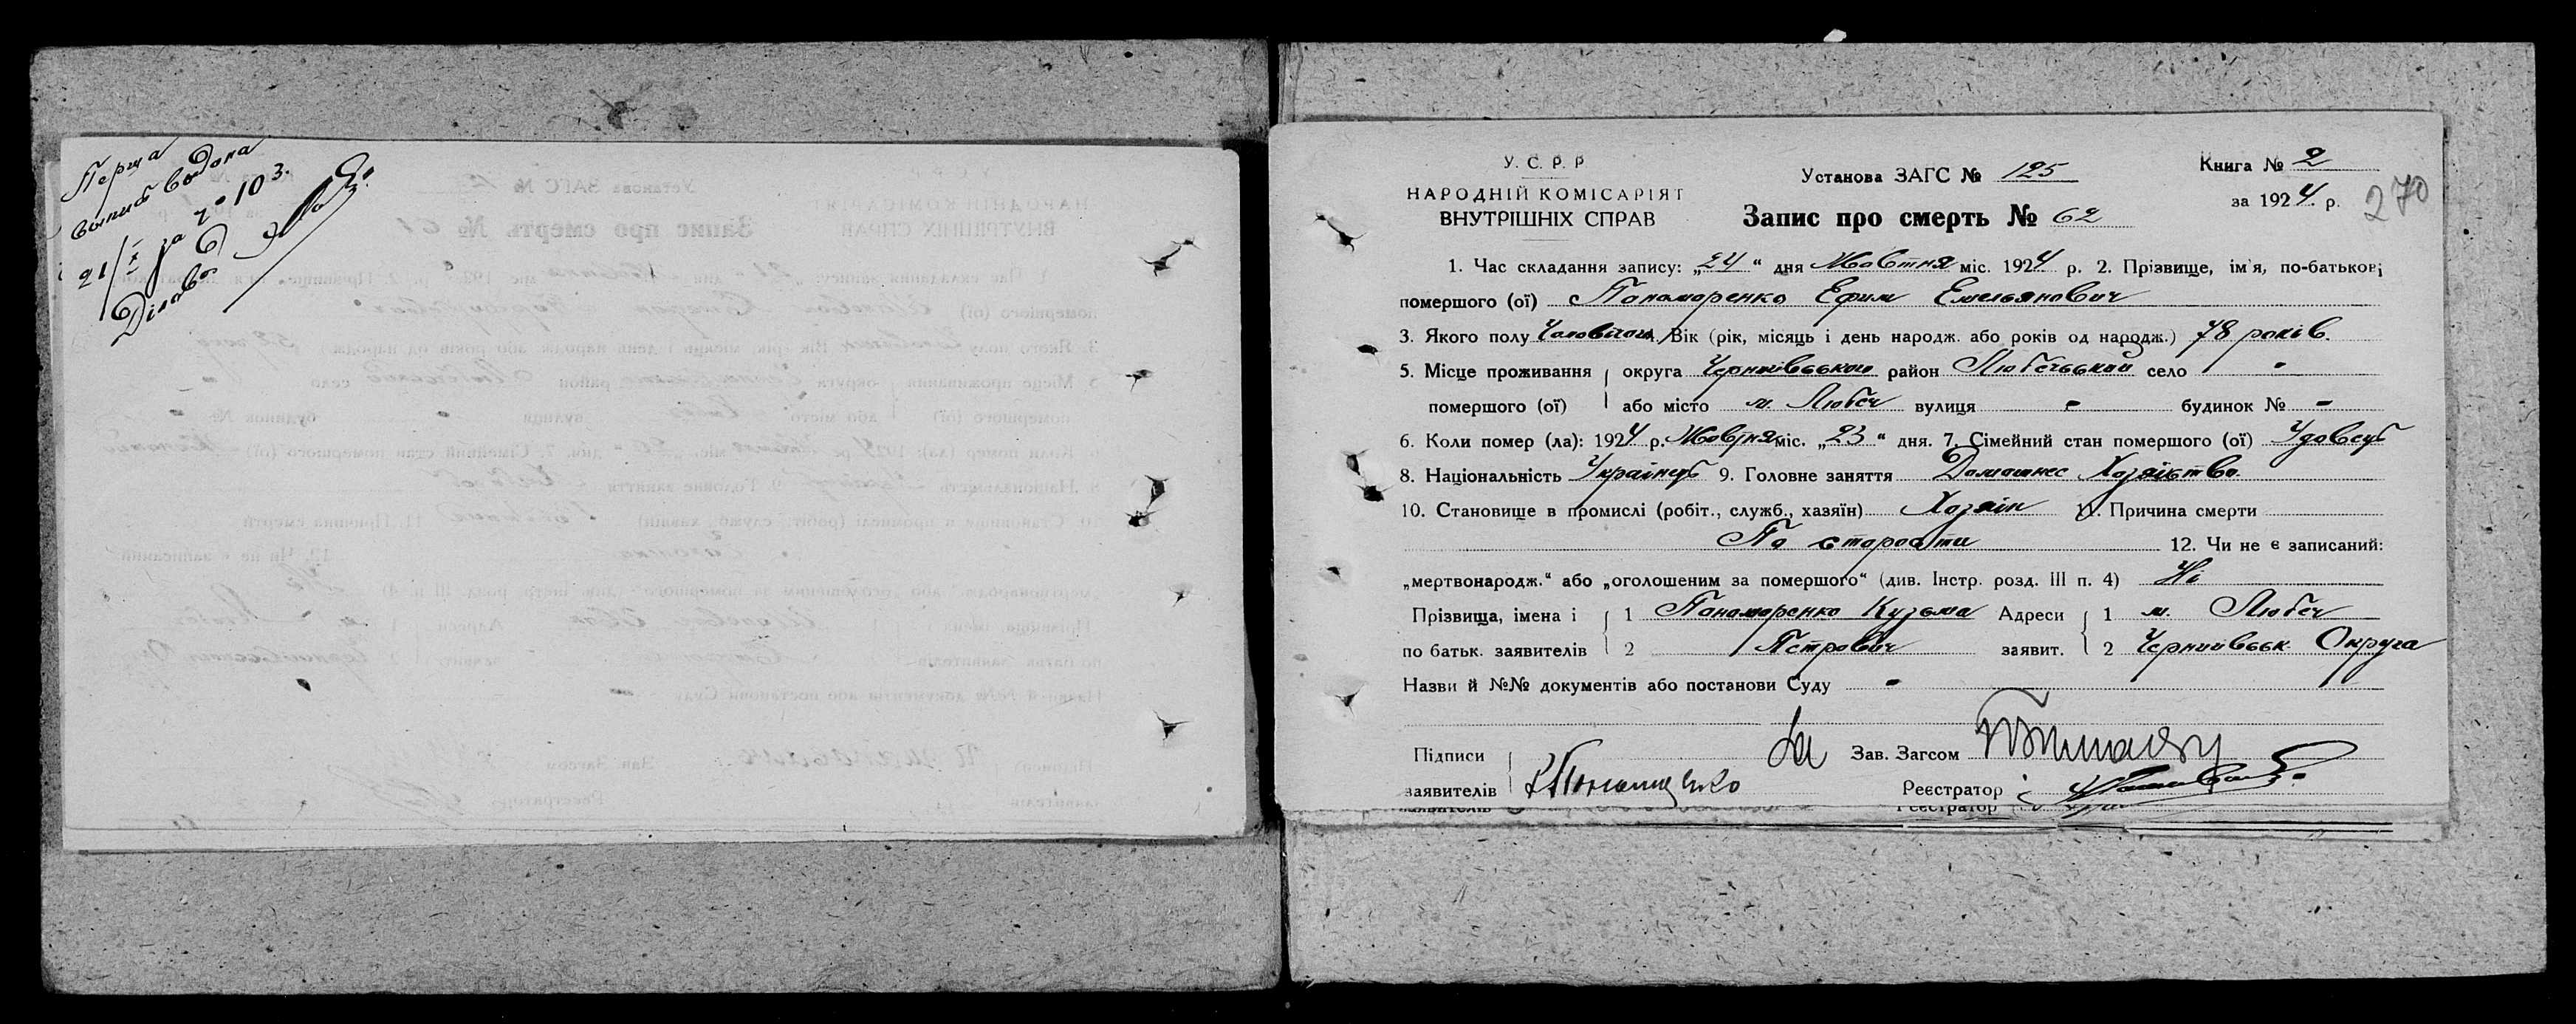 Перша
выпис выдана
21/X за № 103.
Діловод
У. С. Р. Р
НАРОДНІЙ КОМІСАРІЯТ
ВНУТРІШНІХ СПРАВ
Установа ЗАГС № 125
Запис про смерть № 62
Книга № 2
за 1924 р.
270
1. Час складання запису: „24“ дня Жовтня міс. 1924 р. 2. Прізвище, ім'я, по-батькові
помершого (ої) Пономоренко Ефим Емельянович
3. Якого полу Чоловічого 4. Вік (рік, місяць і день народж. або років од народж.) 78 років.
5. Місце проживання округа Чернниівського район Любечьский село -
помершого (ої) або місто м. Любеч вулиця - будинок № -
6. Коли помер (ла): 1924 р. Жовтня міс. „23“ дня. 7. Сімейний стан помершого (ої) Удовець
8. Національність Українець 9. Головне заняття Домашнее Хозяйство
10. Становище в промислі (робіт., служб., хазяїн) Хозяін 11. Причина смерти
По старости 12. Чи не є записаний:
„мертвонародж.“ або „оголошеним за помершого“ (див. Інстр. розд. III п. 4) Ні
Прізвища, імена і 1 Пономоренко Кузьма Адреси 1 м. Любеч
по батьк. заявителів 2 Петрович заявит. 2 Черниивськ. Округа
Назви й №№ документів або постанови Суду -
Підписи За Зав. Загсом
заявителів Реєстратор
заявителів Реєстратор